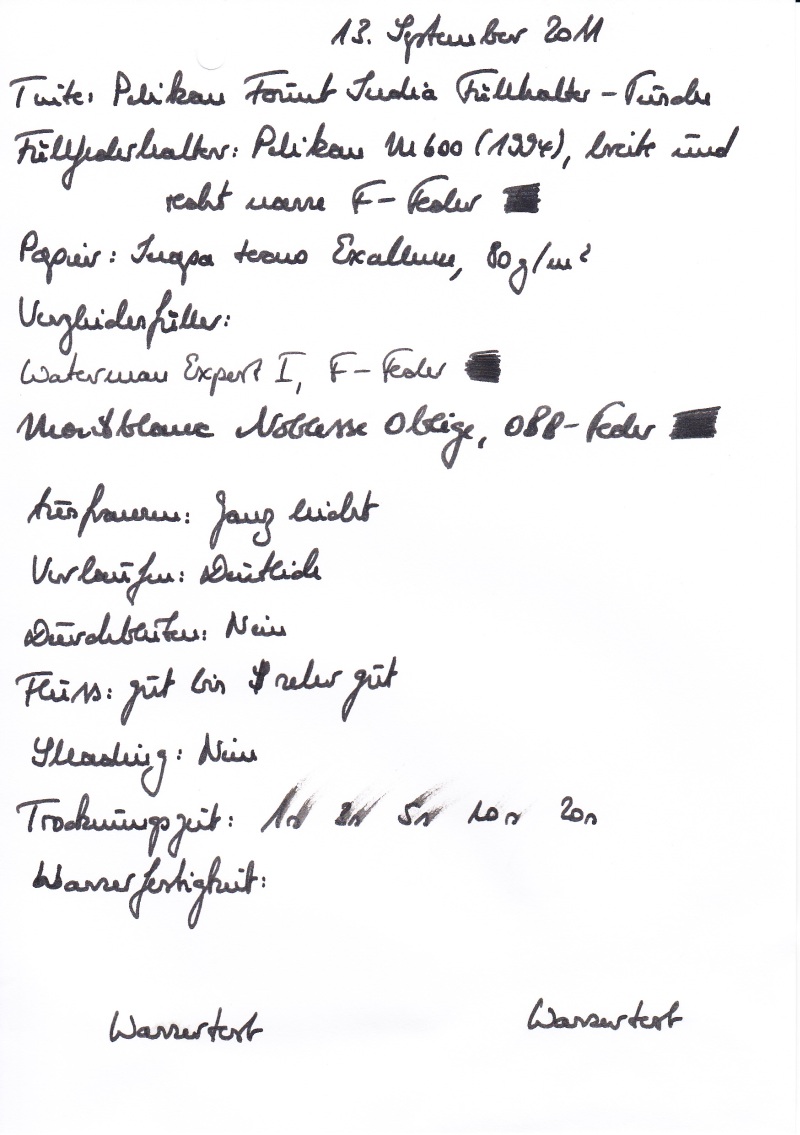 13. September 2011
Tinte: Pelikan Fount India Füllhalter-Tusche
Füllfederhalter: Pelikan M600 (1994), breite und
recht nasse F-Feder
Papier: Inapa tecno Excellence, 80g/m²
Vergleichsfüller:
Waterman Expert I, F-Feder
Montblanc Noblesse Oblige, OBB-Feder
Ausfransen: Ganz leicht
Verlaufen: Deutlich
Durchbluten: Nein
Fluss: gut bis sehr gut
Shading: Nein
Trocknungszeit: 1s 2s 5s 10s 20s
Wasserfestigkeit:
Wassertest Wassertest